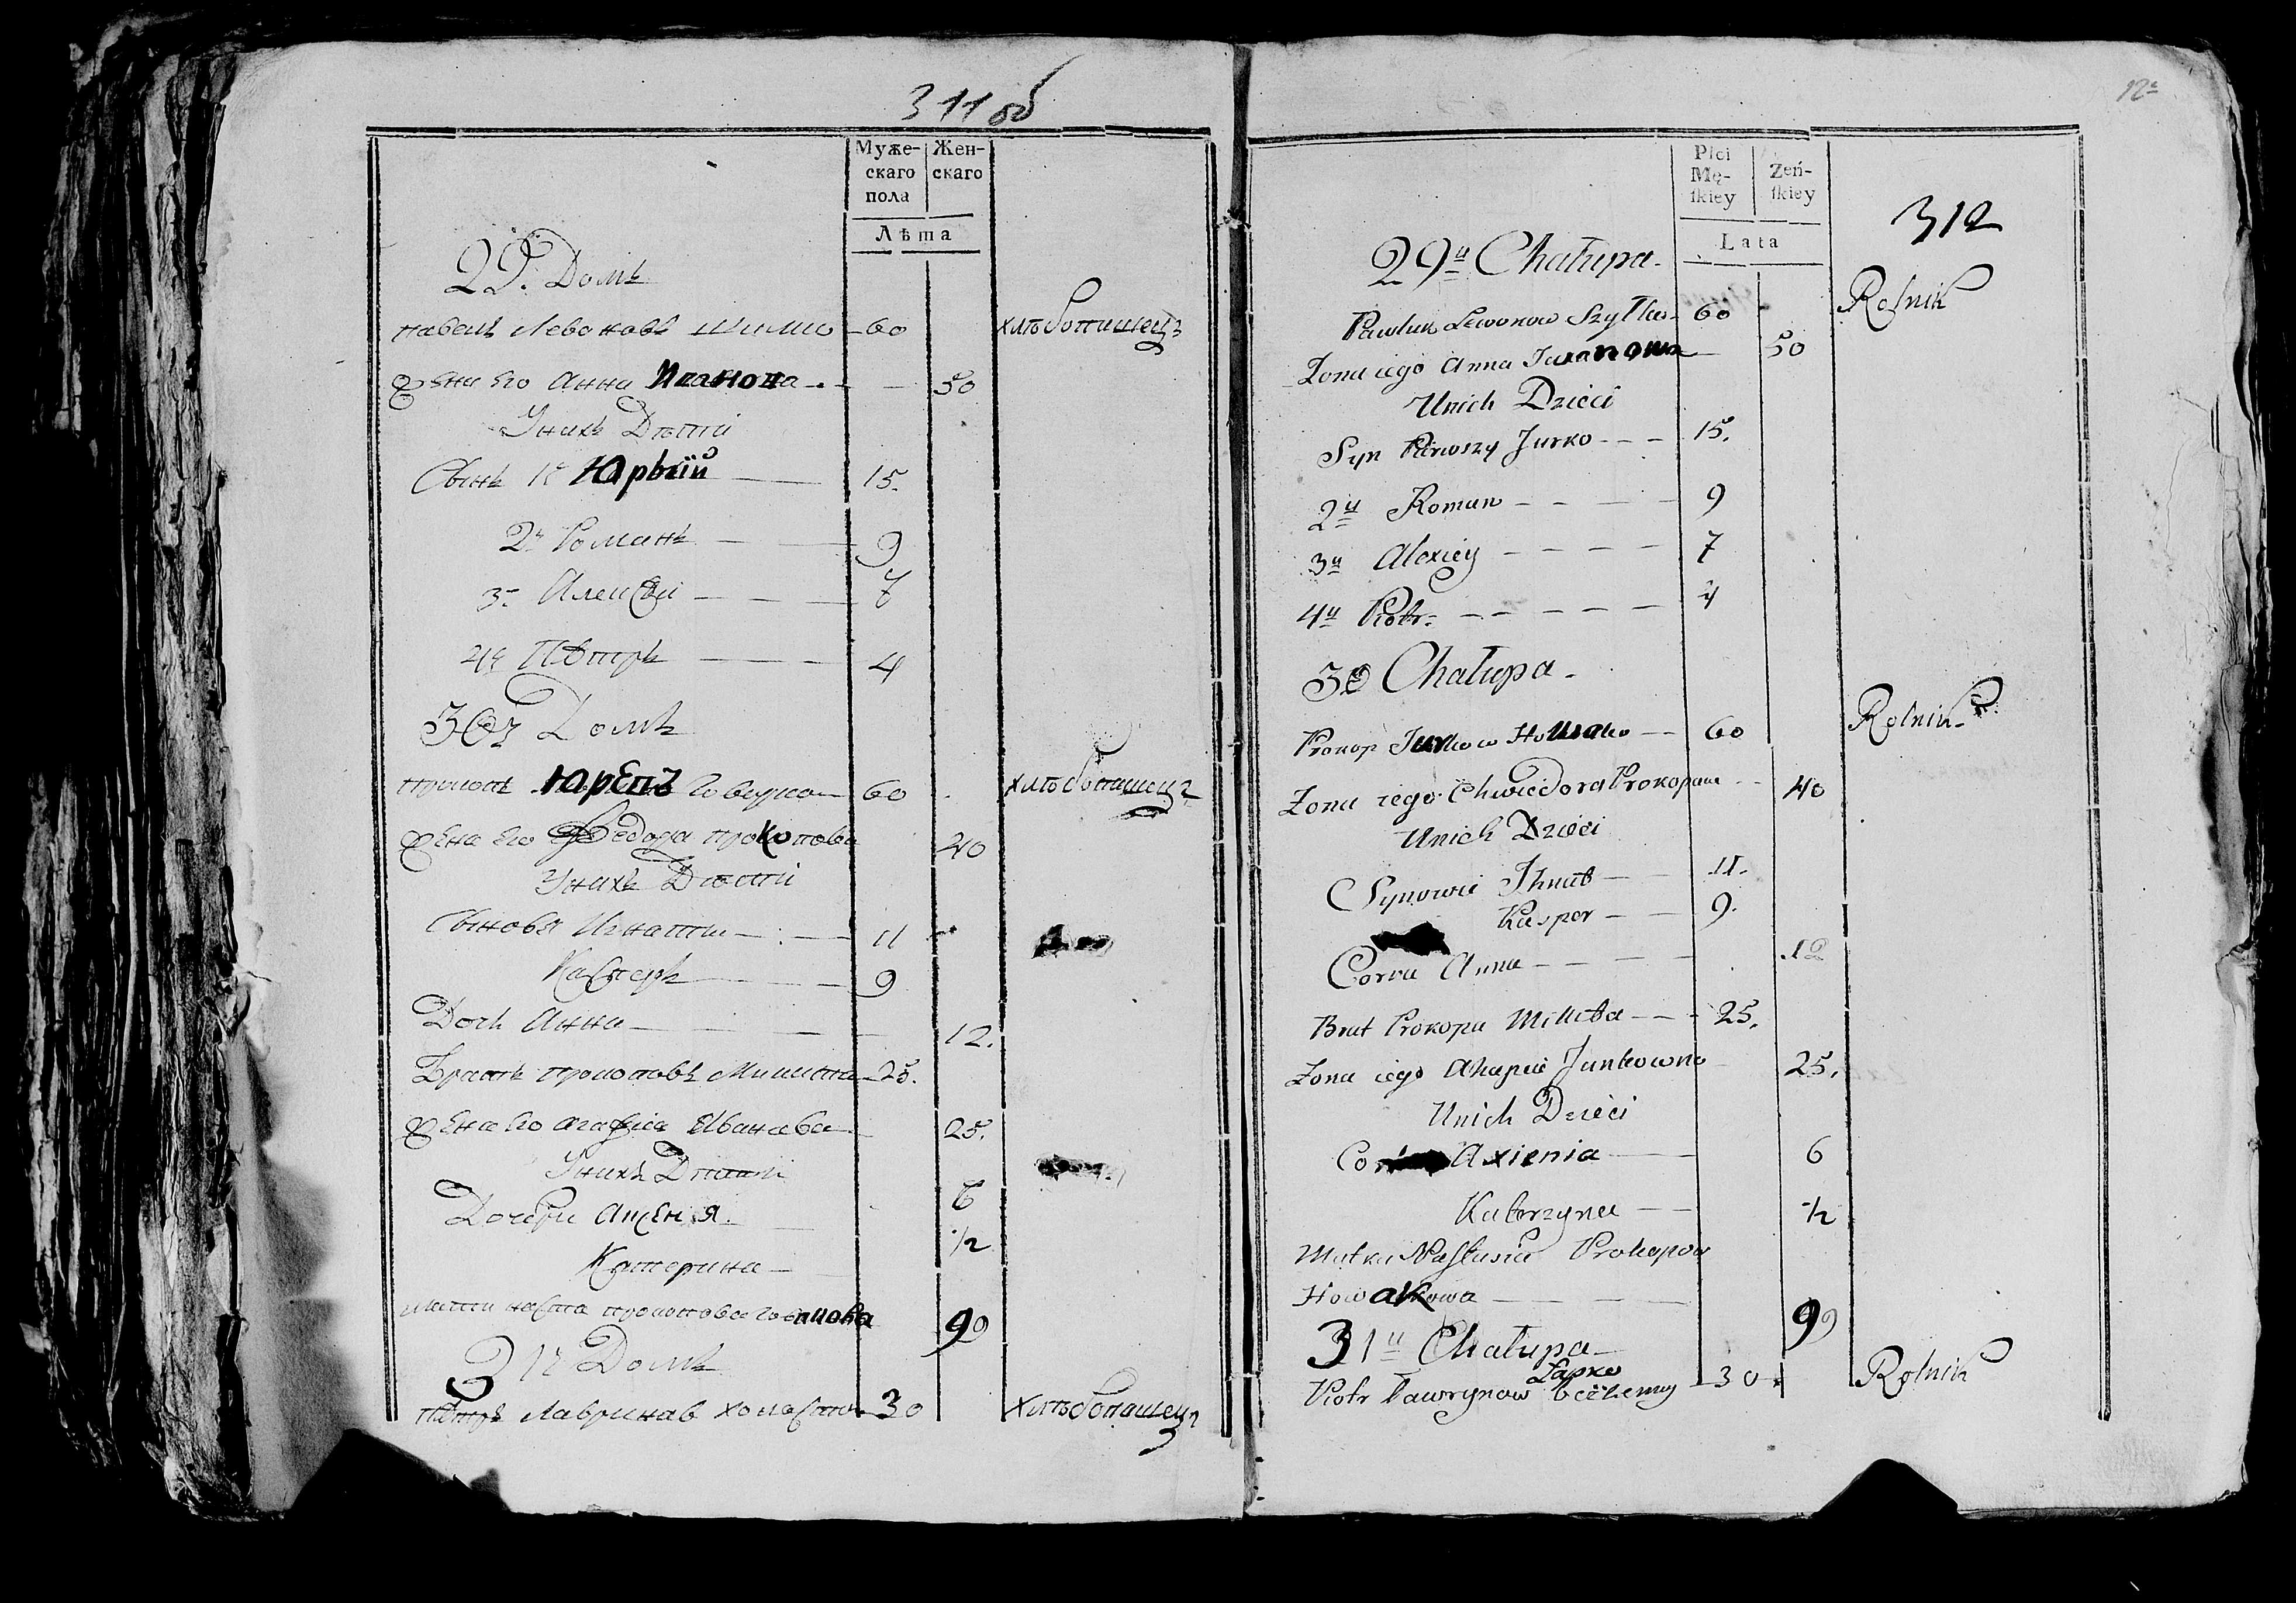 311 об
Муже-
скаго
пола
Жен-
скаго
Лѣта
29. Домъ
павелъ Левоновъ шило 60 хлѣбопашецъ
жена Его Анна Иванова 50
Унихъ Дѣти
Сынъ 1й Юрьій 15.
2й Романъ 9
3й Алексѣй 7
4й Пётръ 4
30й Домъ
прокопъ Юревъ 60 хлѣбопашецъ
жена Его Федора прокопова 40
Унихъ Дѣти
Сыновья Игнатій 11
Касперъ 9
Дочь Анна 12.
Братъ прокоповъ Микита 25.
жена Его агафия Иванава 25.
Унихъ Дѣти
Дочери аксеня 6
Катерина 1/2
мати наста прокопова 90
31й Домъ
Пётръ Лавринав 30 хлѣбопашецъ
12
Płci
Mę-
skiey
Żeń-
skiey
Lata
312
29a Chałupa
Pawluk Lewonow Szyłko 60 Rolnik
Zona iego Anna Iwanowa 50
Unich Dzieci
Syn Pierwszy Jurko 15.
2y Roman 9
3y Alexiey 7
4y Piotr 4
30 Chałupa
Prokop Jurkow 60 Rolnik
Zona iego Chwiedora Prokopowa 40
Unich Dzieci
Synowie Ihnat 11.
Kasper 9.
Corka Anna 12
Brat Prokopa Mikita 25.
Zona iego Ahapia Jankowna 25.
Unich Dzieci
Axienia 6
Katerzyna 1/2
Matka Nastasia Prokopow
Nowakowa 99
31a Chałupa
Łapko
Piotr Ławrynow 30 Rolnik